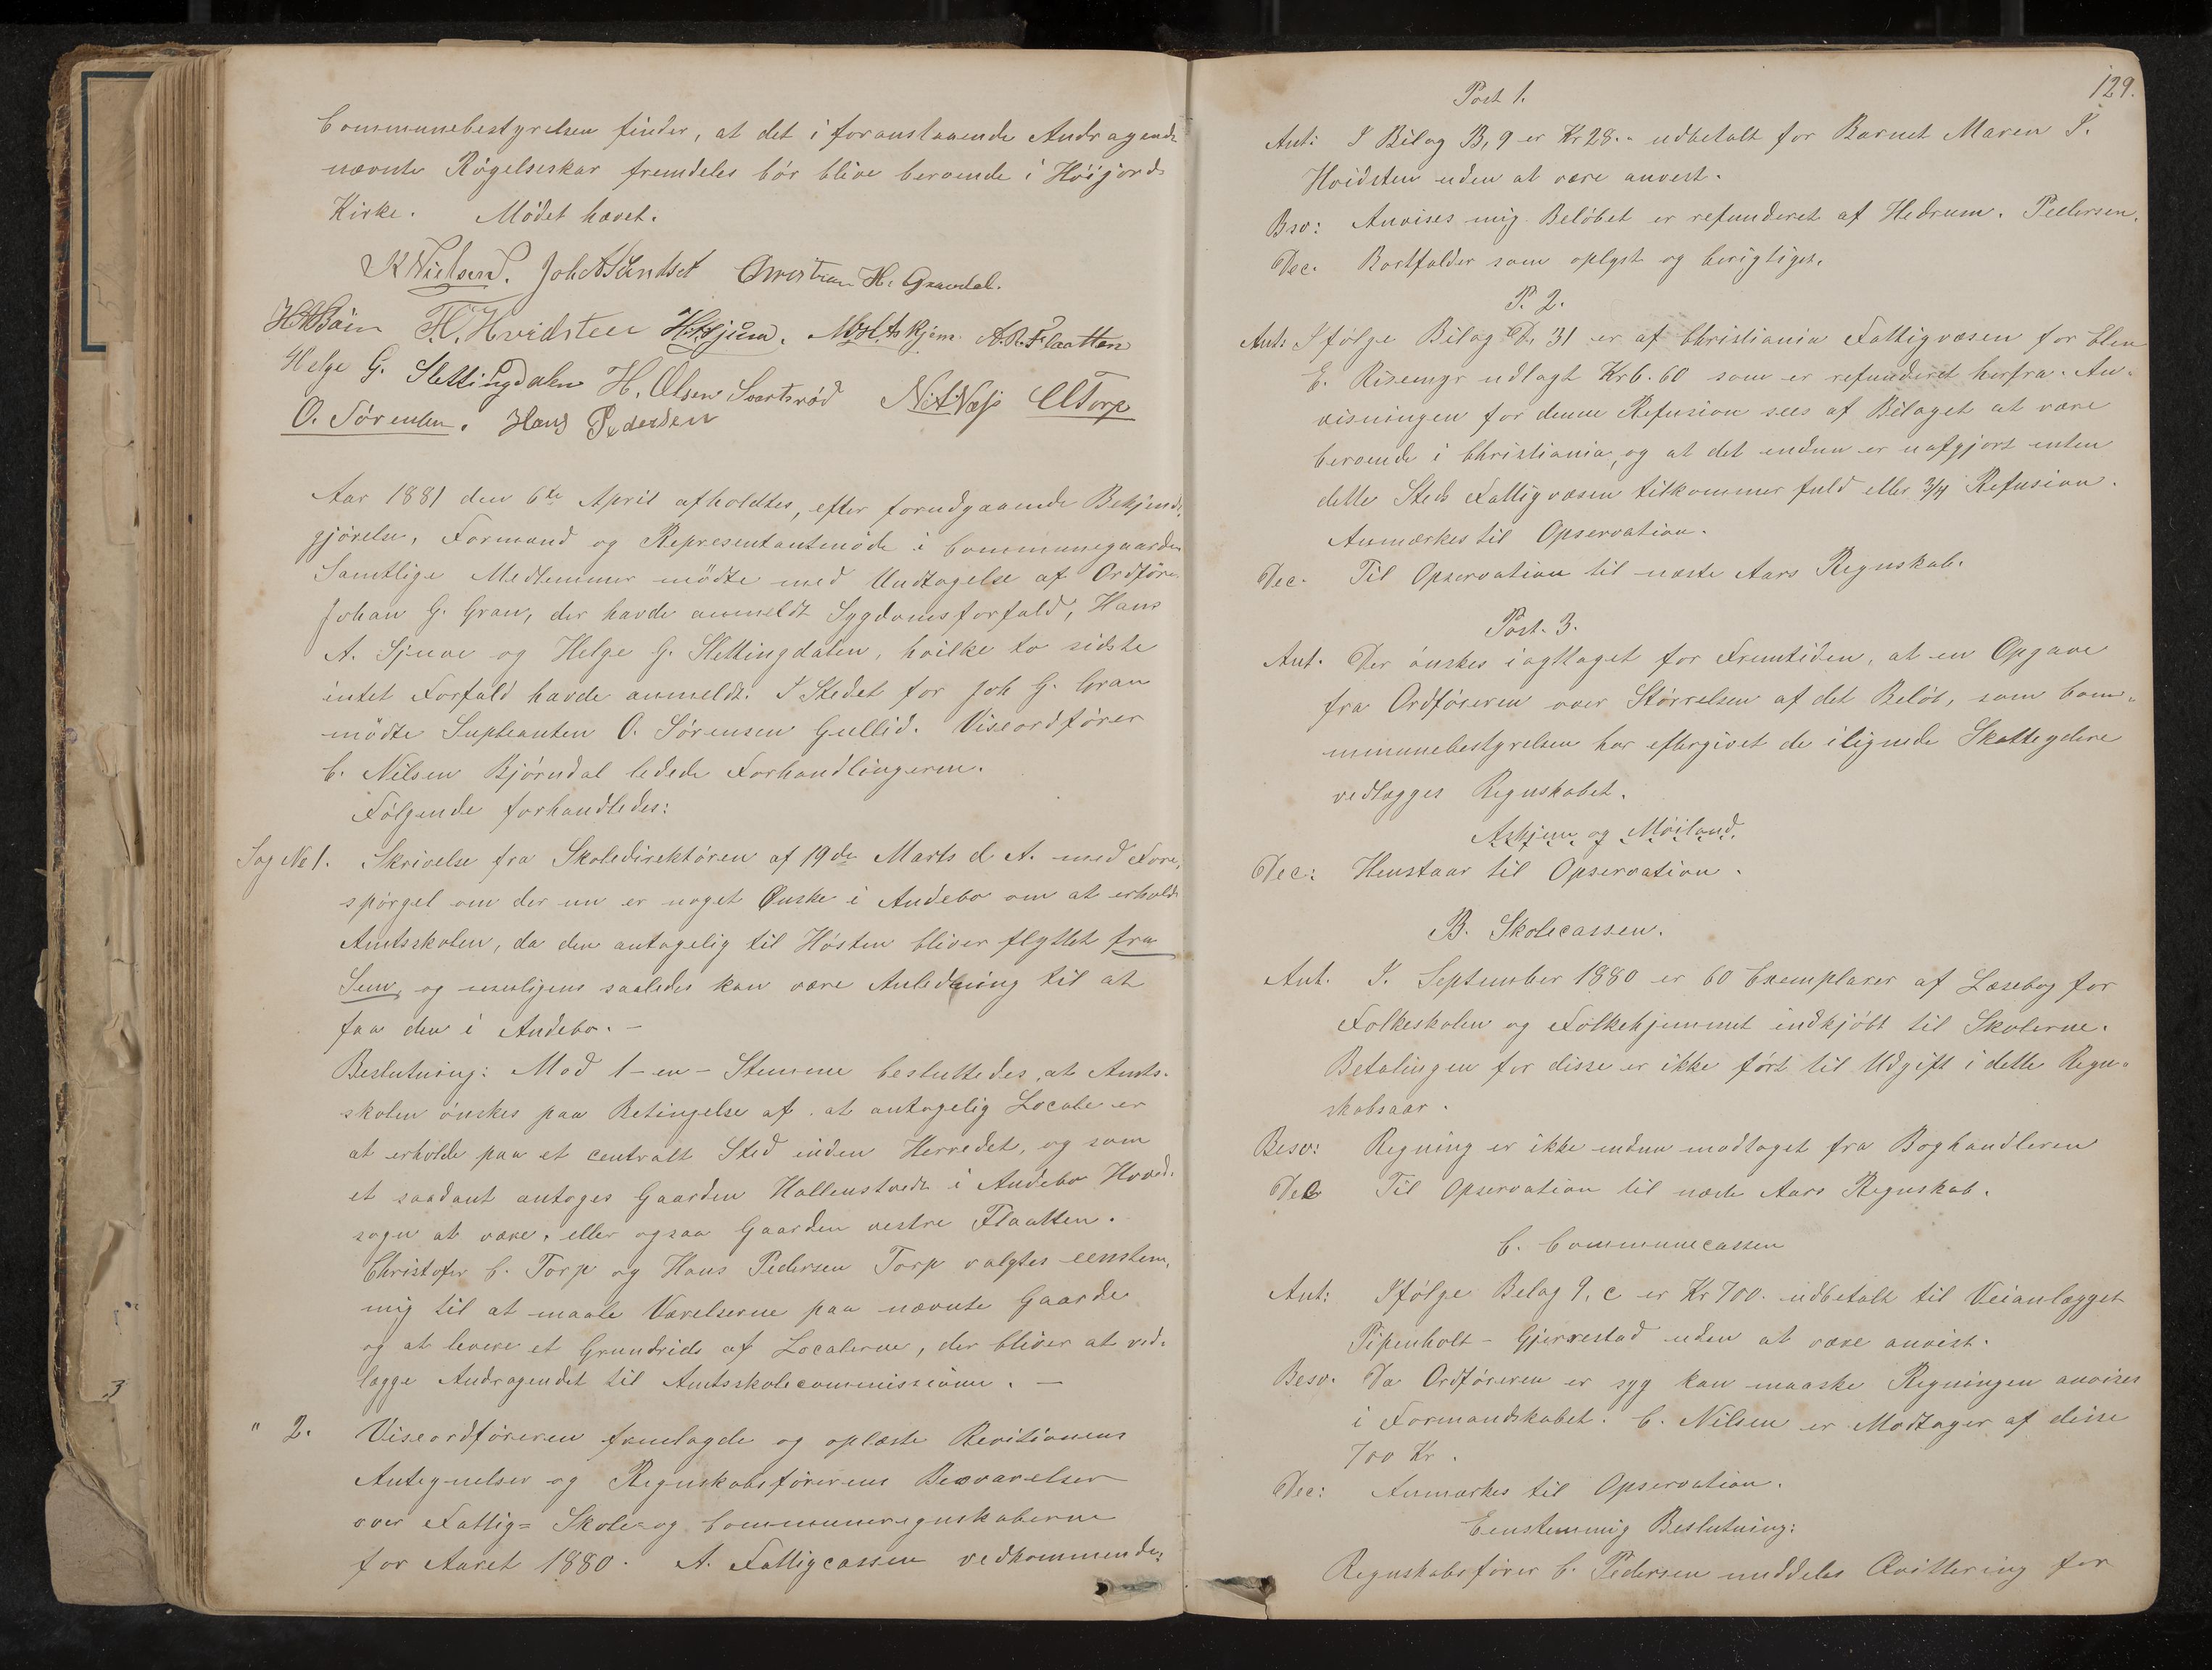 Communebestyrelsen finder, at det i foranstaaende Andragende
nævnte Røgelseskar fremdeles bör blive beroende i Höijords
Kirke. Mödet hævet.
K Nielsen. Joh A Sundset Christian H. Gravdal.
H. Hvidsten A. R. Flaatten
Helge G. Slettingdalen H. Olsen Svartsrød N. A. Næss C Torp
O. Sørensen. Hans Pedersen
Aar 1881 den 6te April afholdtes, efter forudgaaende Bekjendt-
gjørelse, Formand og Representantmöde i Communegaarden
Samtlige Medlemmer mödte med Undtagelse af Ordförer
Johan G. Gran, der havde anmeldt Sygdomsforfald, Hans
A. Sjueve og Helge G. Slettingdalen, hvilke to sidste
intet Forfald havde anmeldt. I Stedet for Joh G. Gran
mödte Supleanten O. Sörensen Gullid. Viseordförer
C. Nilsen Björndal ledede Forhandlingerne.
Fölgende forhandledes:
Sag No 1. Skrivelse fra Skoledirektören af 19de Marts d. A. med Fore-
spörgel om der nu er noget Önske i Andebo om at erholde
Amtsskolen, da den antagelig til Hösten bliver flyttet fra
Sem, og muligens saaledes kan være Anledning til at
faa den i Andebo. -
Beslutning: Mod 1 - en - Stemme besluttedes, at Amts-
skolen önskes paa Betingelse af at antagelig Locale er
at erholde paa et centralt Sted inden Herredet, og som
et saadant antages Gaarden Hallenstvedt i Andebo Hoved-
sogn at være, eller ogsaa Gaarden vestre Flaatten.
Christofer C. Torp og Hans Pedersen Torp valgtes eenstem-
mig til at maale Værelserne paa nævnte Gaarde
og at levere et Grundrids af Localerne, der bliver at ved-
lægge Andragendet til Amtsskolecommissionen. -
" 2. Viseordföreren fremlagde og oplæste Revitionens
Antegnelser og Regnskabsförerens Besvarelser
over Fattig= Skole= og Communeregnskaberne
for Aaret 1880. A. Fattigcassen vedkommende:
129.
Post 1.
Ant: I Bilag B, 9 er Kr 28.- udbetalt for Barnet Maren P.
Hvidsten uden at være anvist.
Bsv: Anvises mig. Belöbet er refunderet af Hedrum. Pedersen.
Dec. Bortfalder som oplyst og berigtiget.
P. 2.
Ant: Ifölge Bilag D. 31 er af Christiania Fattigvæsen for Elen
E. Risemyr udlagt Kr 6.60 som er refunderet herfra. An-
visningen for denne Refusion sees af Bilaget at være
beroende i Christiania, og at det endnu er uafgjort enten
dette Steds Fattigvæsen tilkommer fuld eller 3/4 Refusion.
Anmærkes til Opservation.
Dec. Til Opservation til næste Aars Regnskab.
Post. 3.
Ant. Der önskes iagttaget for Fremtiden, at en Opgave
fra Ordföreren over Störrelsen af det Belöb, som Com-
munebestyrelsen har eftergivet de ilignede Skatteydere
vedlægges Regnskabet.
Askjem og Möiland.
Dec: Henstaar til Opservation.
B. Skolecassen.
Ant. I. September 1880 er 60 Exemplarer af Læsebog for
Folkeskolen og Folkehjemmet indkjöbt til Skolerne.
Betalingen for disse er ikke fört til Udgift i dette Regn-
skabsaar.
Besv: Regning er ikke endnu modtaget fra Boghandleren
Dec Til Opservation til næste Aars Regnskab.
C. Communecassen
Ant: Ifölge Belag 9, c er Kr 700. udbetalt til Veianlægget
Pipenholt - Gjerrestad uden at være anvist.
Besv. Da Ordföreren er syg kan maaske Regningen anvises
i Formandskabet. C. Nilsen er Modtager af disse
700 Kr.
Dec: Anmærkes til Opservation.
Eenstemmig Beslutning:
Regnskabsförer C. Pedersen meddeles Qvittering for